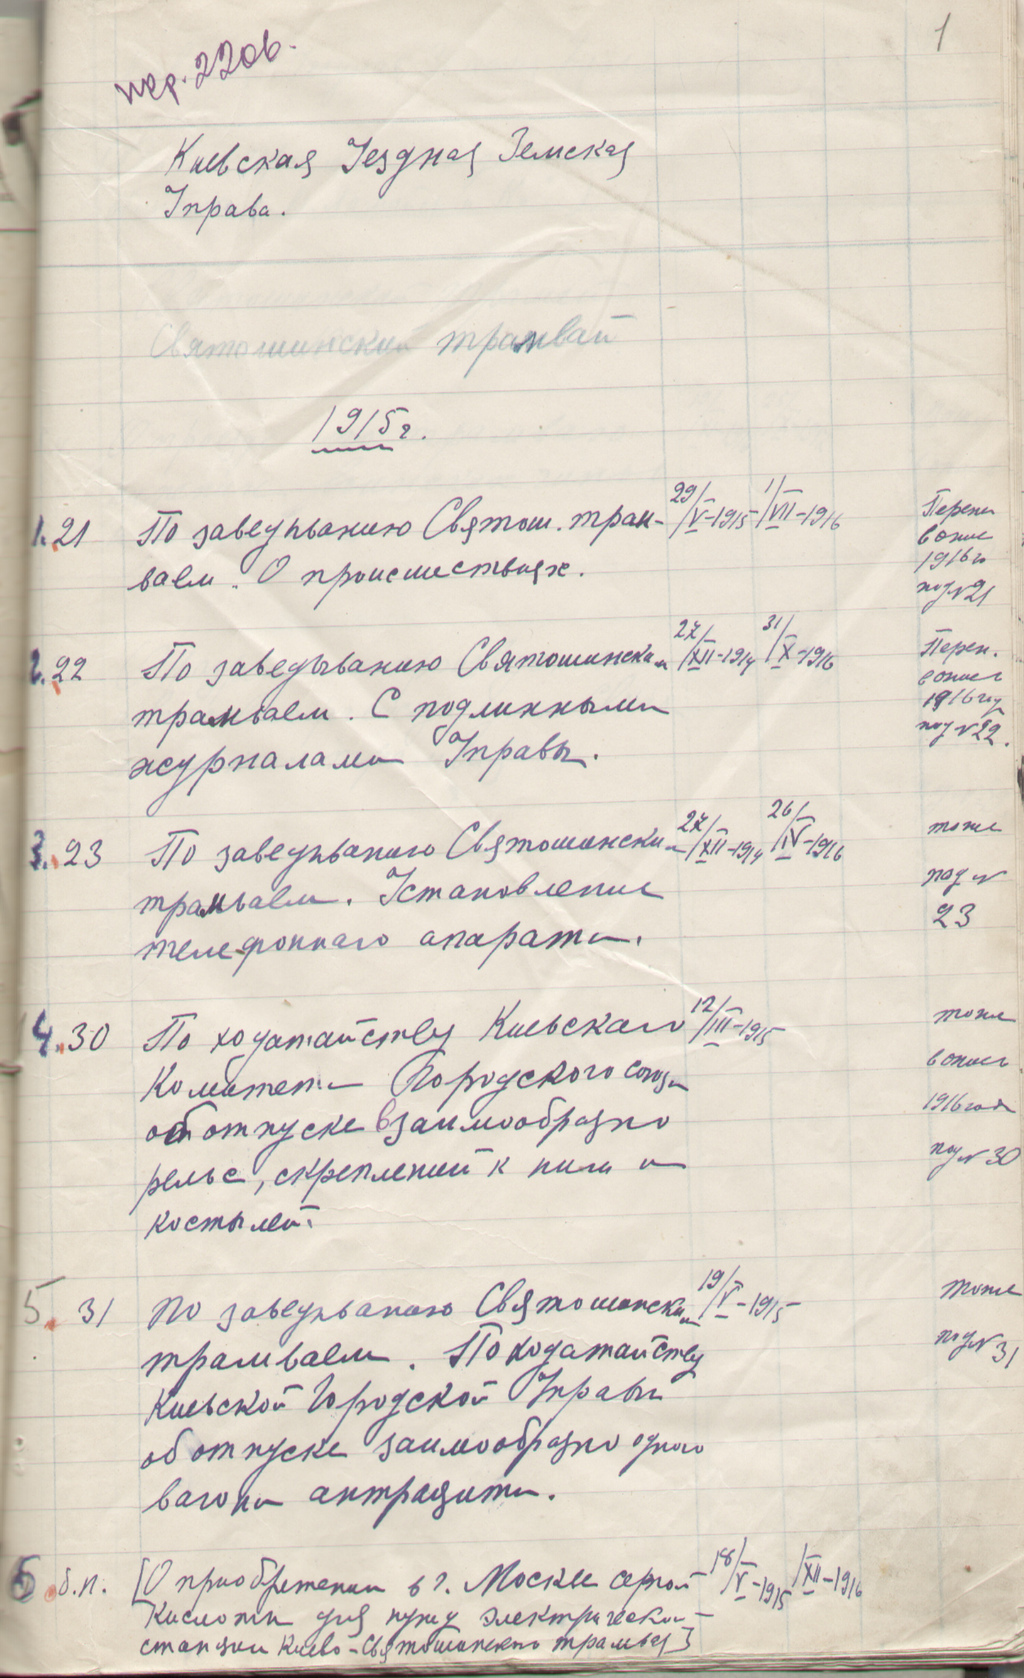 1
пер. 220б.
Киевская Уездная Земская
Управа.
Святошинский трамвай
1915 г.
1. 21 По заведыванию Святош. трам- 29/V-1915 - 1/VII-1916 Перен.
ваем. О происшествиях. в опис
1916 г.
под № 21
2. 22 По заведыванию Святошинским 27/XII-1914 31/X-1916 Перен.
трамваем. С подлинными в опись
1916 г.
журналами Управы. под № 22.
3. 23 По заведыванию Святошинским 27/XII-1914 26/IV-1916 тоже
трамваем. Установление под №
телефоннаго апарата. 23
4. 30 По ходатайству Киевскаго 12/III-1915 тоже
Комитета Городского союза в опись
об отпуске взаимообразно 1916 года
рельс, скреплений к ним и под № 30
костылей.
5. 31 По заведыванию Святошинским 19/V-1915 тоже
трамваем. По ходатайству под № 31
Киевской Городской Управы
об отпуске заимообразно одного
вагона антрацита.
6. б.н. [О приобретении в г. Москве серной 18/V-1915 1/XII-1916
кислоты для нужд электрической
станции Киево-Святошинского трамвая]